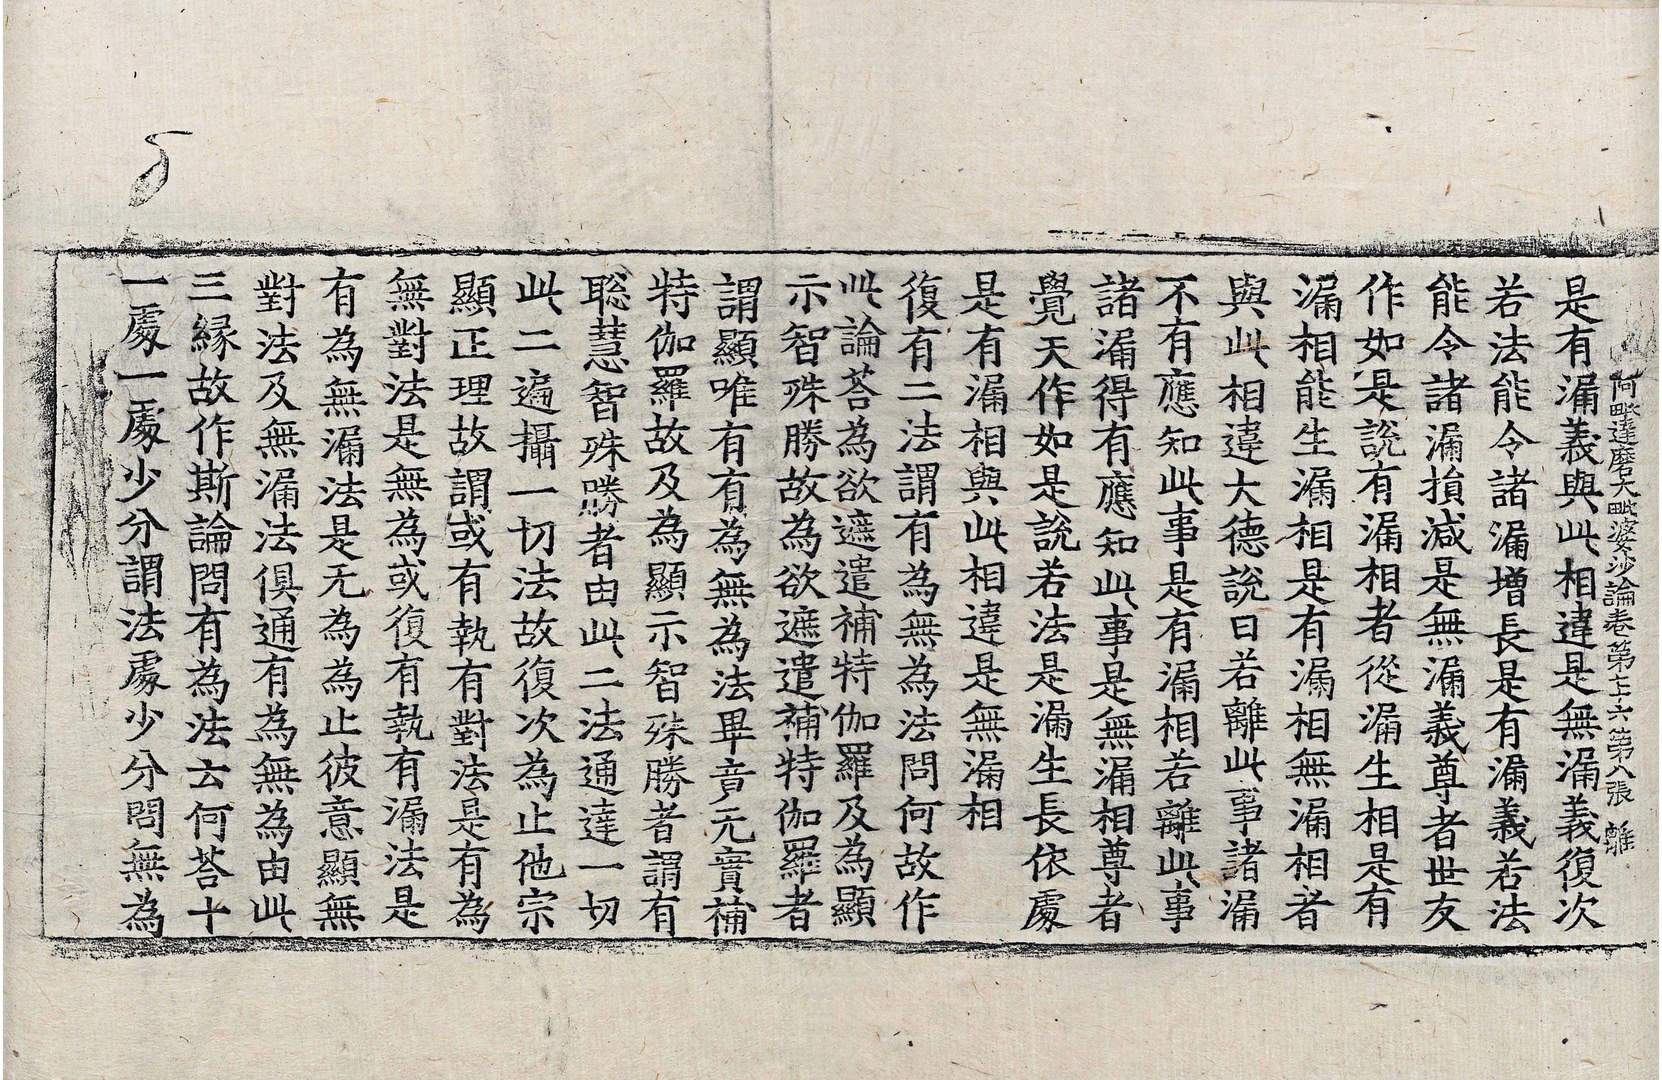 阿毗達磨大毗婆沙論卷第七十六 第八張 離
是有漏義與此相違是無漏義復次
若法能令諸漏增長是有漏義若法
能令諸漏損減是無漏義尊者世友
作如是說有漏相者從漏生相是有
漏相能生漏相是有漏相無漏相者
與此相違大德說曰若離此事諸漏
不有應知此事是有漏相若離此事
諸漏得有應知此事是無漏相尊者
覺天作如是說若法是漏生長依處
是有漏相與此相違是無漏相
復有二法謂有為無為法問何故作
此論荅為欲遮遣補特伽羅及為顯
示智殊勝故為欲遮遣補特伽羅者
謂顯唯有有為無為法畢竟无實補
特伽羅故及為顯示智殊勝者謂有
聡慧智殊勝者由此二法通達一切
此二遍攝一切法故復次為止他宗
顯正理故謂或有執有對法是有為
無對法是無為或復有執有漏法是
有為無漏法是无為為止彼意顯無
對法及無漏法俱通有為無為由此
三緣故作斯論問有為法云何荅十
一處一處少分謂法處少分問無為